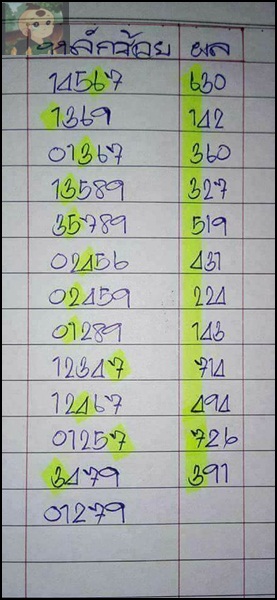 หาหลักร้อย ผล
14567 630
1369 142
01367 360
13589 327
35789 519
02456 431
02459 224
01289 143
12347 714
12467 494
01257 726
3479 391
01279